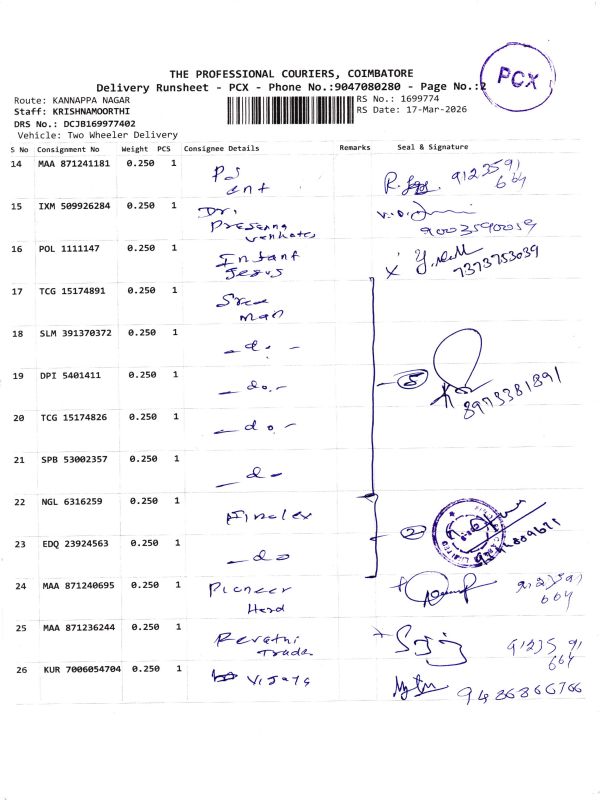 THE PROFESSIONAL COURIERS, COIMBATORE
Delivery Runsheet - PCX - Phone No.:9047080280 - Page No.:2
PCX
Route: KANNAPPA NAGAR
RS No.: 1699774
Staff: KRISHNAMOORTHI
RS Date: 17-Mar-2026
DRS No.: DCJB169977402
Vehicle: Two Wheeler Delivery
S No Consignment No Weight PCS Consignee Details Remarks Seal & Signature
14 MAA 871241181 0.250 1 9123591
664
15 IXM 509926284 0.250 1 Dr.
Presanna
Venkates 9003590059
16 POL 1111147 0.250 1 Infant
Jesus 7373753039
17 TCG 15174891 0.250 1 Sree
man
18 SLM 391370372 0.250 1 - do -
19 DPI 5401411 0.250 1 - do. - 5
8973381891
20 TCG 15174826 0.250 1 - do. -
21 SPB 53002357 0.250 1 - do -
22 NGL 6316259 0.250 1 Finolex
2
23 EDQ 23924563 0.250 1 - do
24 MAA 871240695 0.250 1 Pioneer
Herd 9123591
664
25 MAA 871236244 0.250 1 Revathi
Trades 9123591
664
26 KUR 7006054704 0.250 1 Vijaya 9486866766